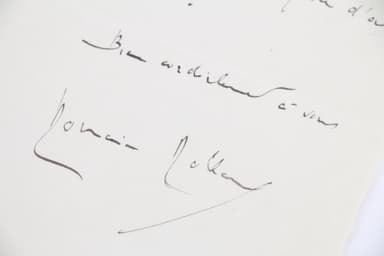 d'a
Bien cordialement à vous
Romain Rolland